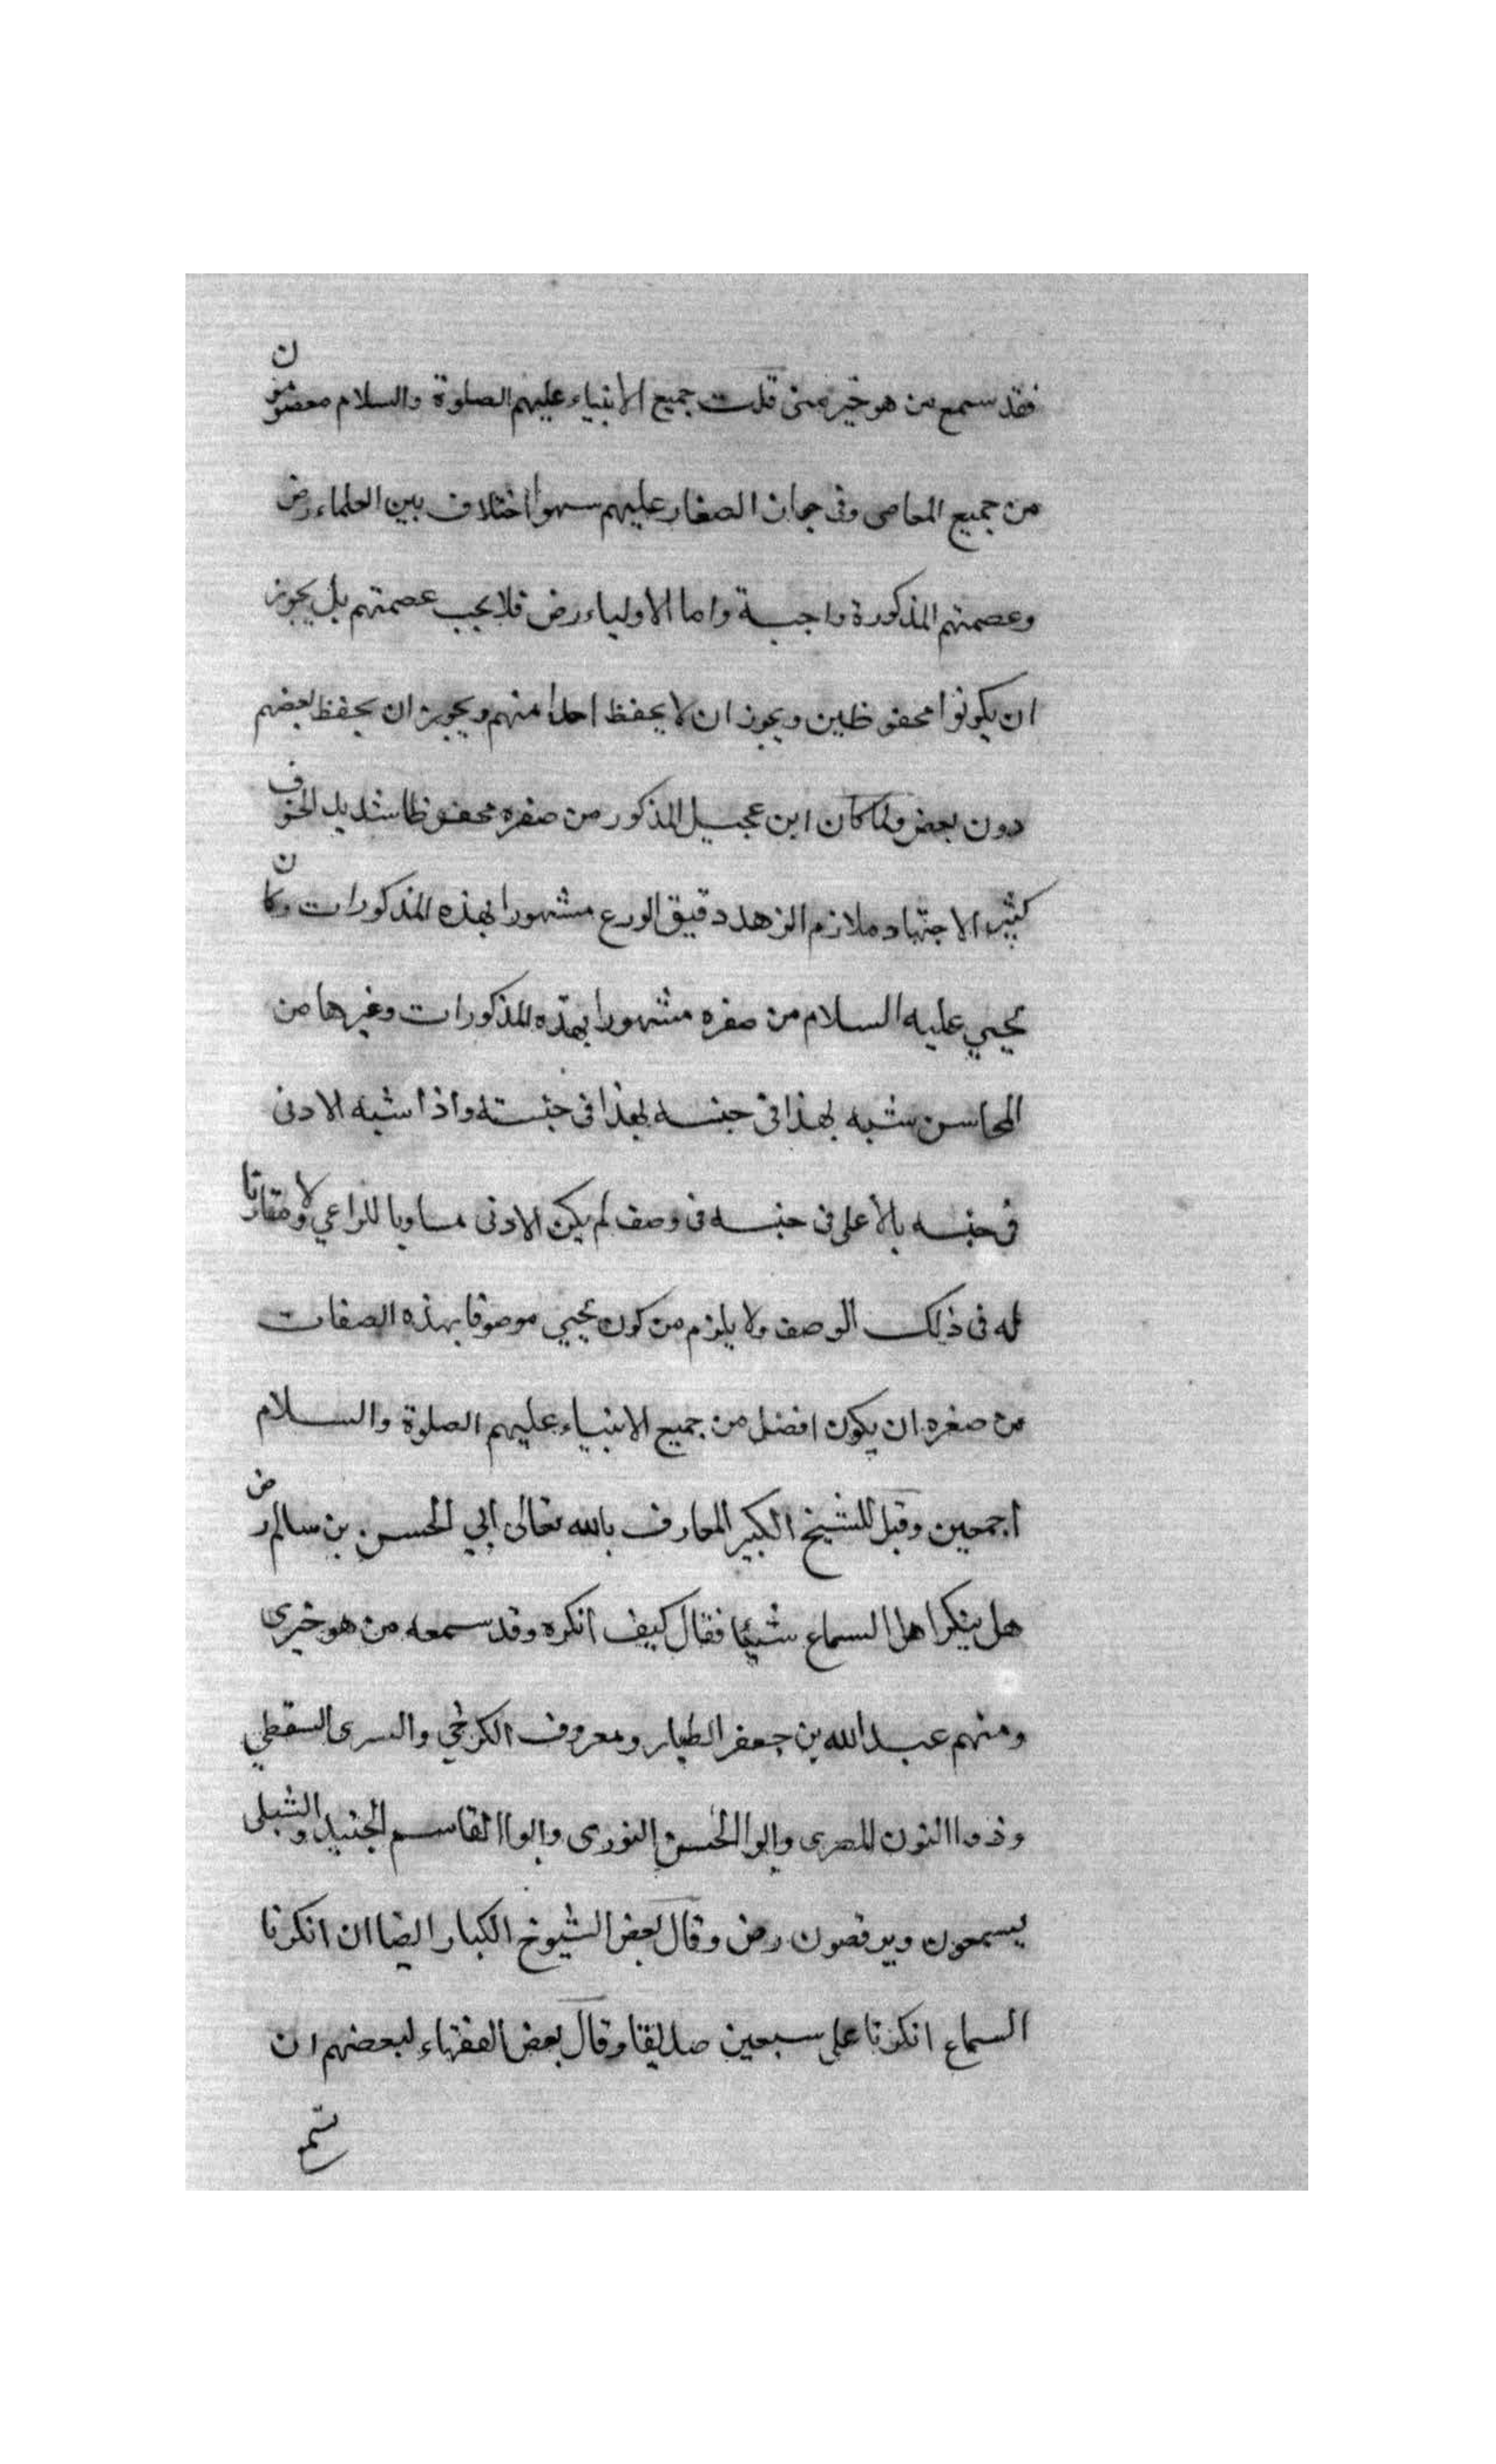 فقد سمع من هو خير منى قلت جميع الانبياء عليهم الصلوة والسلام معصومون
من جميع المعاصى وفى جواز الصغار عليهم سهوا اختلاف بين العلماء رض
وعصمتهم المذكورة واجبة واما الاولياء رض فلا يجب عصمتهم بل يجوز
ان يكونوا محفوظين ويجوز ان لا يحفظ احدا منهم ويجوز ان يحفظ بعضهم
دون بعض ولما كان ابن عجيل المذكور من صغره محفوظا شديد الخوف
كثير الاجتهاد ملازم الزهد دقيق الورع مشهورا بهذه المذكورات وكان
يحيي عليه السلام من صغره مشهورا بهذه المذكورات وغيرها من
المحاسن شبه هذا فى جنسه بهذا فى جنسته واذا شبه الادنى
فى جنسه بالأعلى فى جنسه فى وصف لم يكن الادنى مساويا للراعي ولا مقارنا
له فى ذلك الوصف ولا يلزم من كون يحيي موصوفا بهذه الصفات
من صغره ان يكون افضل من جميع الانبياء عليهم الصلوة والسلام
أجمعين وقيل للشيخ الكبير المعارف بالله تعالى ابي الحسن بن سالم رض
هل ينكر اهل السماع شيئا فقال كيف أنكره وقد سمعه من هو خيرى
ومنهم عبد الله بن جعفر الطيار ومعروف الكرخي والسرى السقطي
وذوا النون المصرى وابوا الحسن النورى وابوا القاسم الجنيد والشبلى
يسمعون ويرقصون رض وقال بعض الشيوخ الكبار ايضا ان انكرنا
السماع انكرنا على سبعين صديقا وقال بعض الفقهاء لبعضهم ان